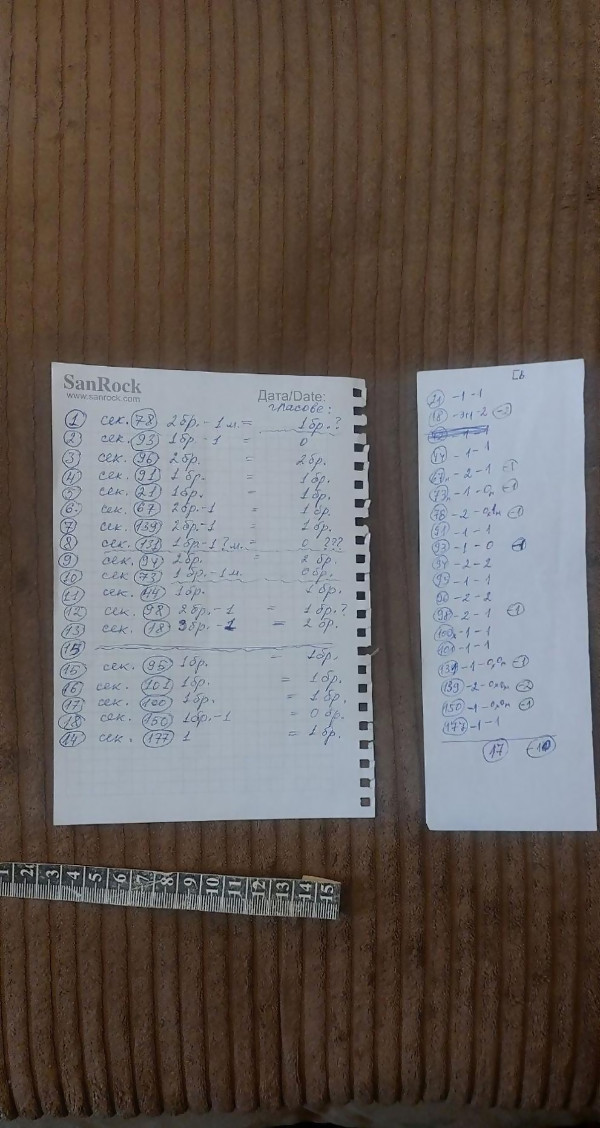 SanRock
www.sanrock.com
Дата/Date:
гласове:
1 сек. 78 2бр.-1м. = 1бр.?
2 сек. 93 1бр.-1 = 0
3 сек. 96 2бр. = 2бр.
4 сек. 91 1бр. = 1бр.
5 сек. 21 1бр. = 1бр.
6 сек. 67 2бр.-1 = 1бр.
7 сек. 139 2бр.-1 = 1бр.
8 сек. 131 1бр-1?м. = 0 ???
9 сек. 94 2бр. = 2бр.
10 сек 73 1бр.-1м. 0бр.
11 сек. 44 1бр. 1бр.
12 сек. 98 2бр.-1 = 1бр.?
13 сек. 18 3бр.-1 = 2бр.
15
15 сек. 95 1бр. = 1бр.
16 сек. 101 1бр. = 1бр.
17 сек. 100 1бр. = 1бр.
18 сек. 150 1бр-1 = 0бр.
14 сек. 177 1 = 1бр.
21 -1-1
18 -2 -2
44 -1-1
67 -2-1 -1
73 -1-0 -1
78 -2- -1
91 -1-1
93 -1-0
94 -2-2
95 -1-1
96 -2-2
98 -2-1 -1
100 -1-1
101 -1-1
131 -1- -1
139 -2- -2
150 -1- -1
177 -1-1
17
1 2 3 4 5 6 7 8 9 10 11 12 13 14 15